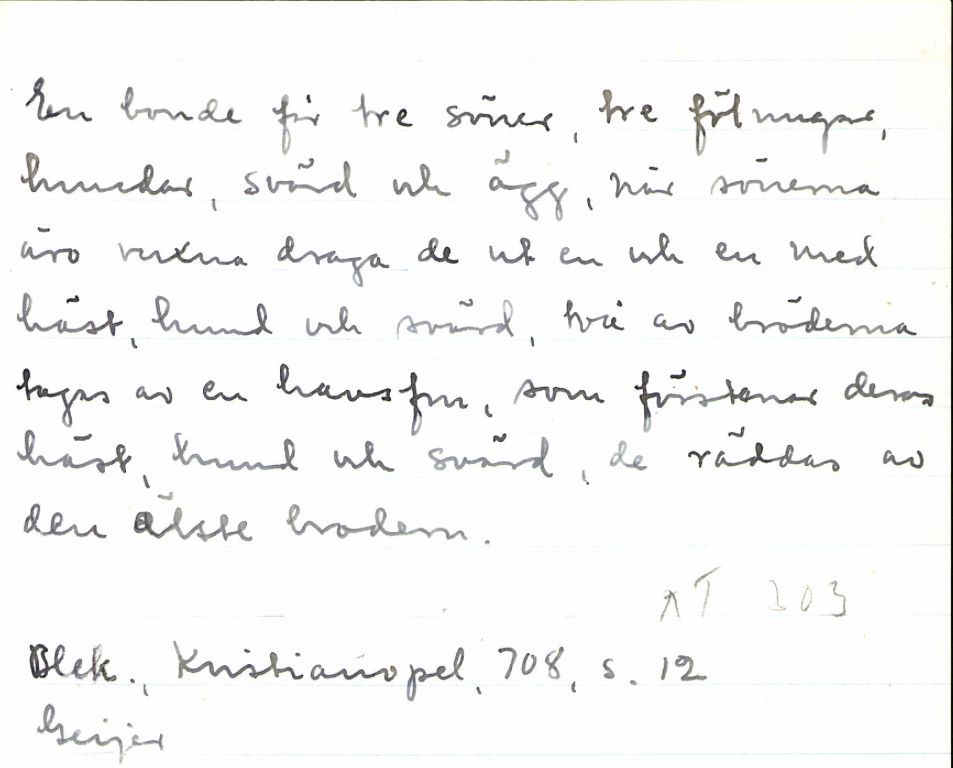 En bonde får tre söner, tre fölungar,
hundar, svärd och ägg, när sönerna
äro vuxna draga de ut en och en med
häst, hund och svärd, två av bröderna
tagas av en havsfru, som förstenar deras
häst, hund och svärd, de räddas av
den älste brodern.
AT 303
Blek., Kristianopel, 708, s. 12
Geijer